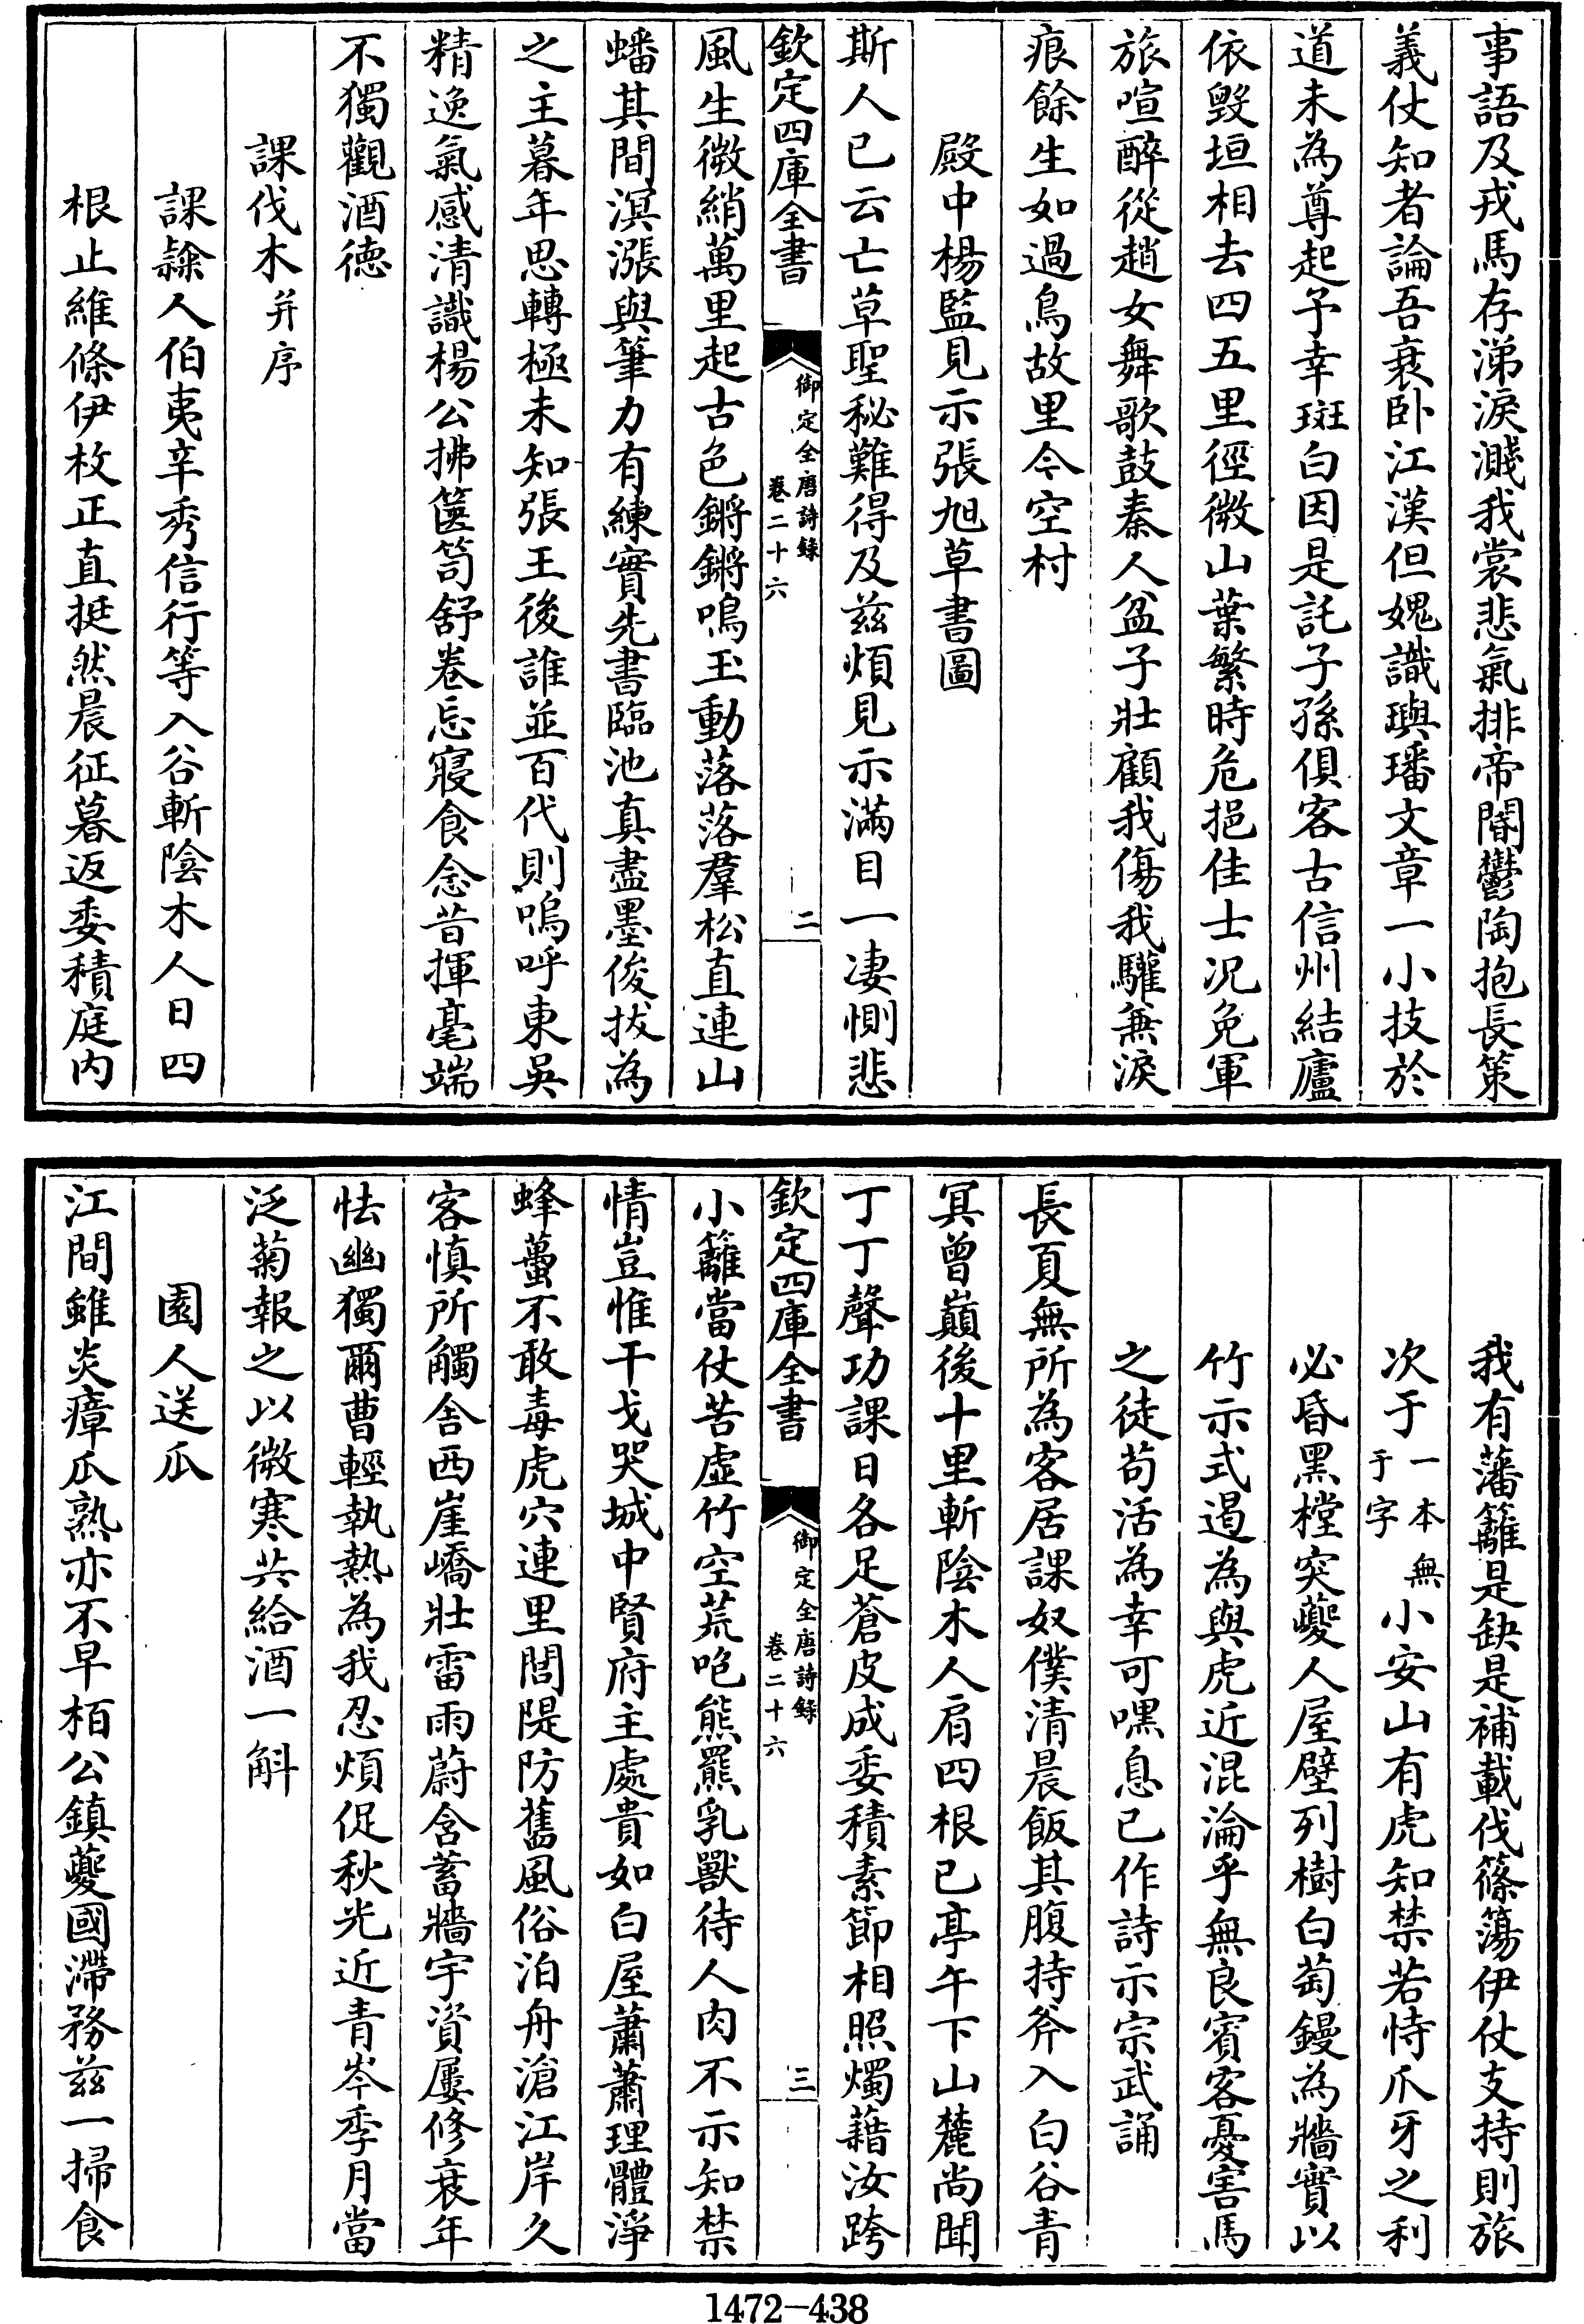 事語及戎馬存涕淚濺我裳悲氣排帝閽鬱陶抱長策
義仗知者論吾衰卧江漢但媿識璵璠文章一小技於
道未為尊起予幸斑白因是託子孫俱客古信州結廬
依毀垣相去四五里徑微山葉繁時危挹佳士况免軍
旅喧醉從趙女舞歌鼓秦人盆子壯顧我傷我驩兼淚
痕餘生如過鳥故里今空村
殿中楊監見示張旭草書圖
斯人已云亡草聖秘難得及兹煩見示滿目一凄惻悲
欽定四庫全書
御定全唐詩錄
卷二十六
二
風生微綃萬里起古色鏘鏘鳴玉動落落羣松直連山
蟠其間溟漲與筆力有練實先書臨池真盡墨俊拔為
之主暮年思轉極未知張王後誰並百代則嗚呼東吳
精逸氣感清識楊公拂篋笥舒卷忘寢食念昔揮毫端
不獨觀酒德
課伐木并序
課隸人伯夷辛秀信行等入谷斬陰木人日四
根止維條伊枚正直挺然晨征暮返委積庭内
我有藩籬是缺是補載伐篠簜伊仗支持則旅
次于一本無于字小安山有虎知禁若恃爪牙之利
必昏黑㯫突夔人屋壁列樹白萄鏝為牆實以
竹示式遏為與虎近混淪乎無良賓客憂害馬
之徒苟活為幸可嘿息已作詩示宗武誦
長夏無所為客居課奴僕清晨飯其腹持斧入白谷青
冥曾巔後十里斬陰木人肩四根已亭午下山麓尚聞
丁丁聲功課日各足蒼皮成委積素節相照燭藉汝跨
欽定四庫全書
御定全唐詩錄
卷二十六
三
小籬當仗苦虛竹空荒咆熊羆乳獸待人肉不示知禁
情豈惟干戈哭城中賢府主處貴如白屋蕭蕭理體淨
蜂蠆不敢毒虎穴連里閭隄防舊風俗泊舟滄江岸久
客慎所觸舍西崖嶠壯雷雨蔚含蓄牆宇資屢修衰年
怯幽獨爾曹輕執熱為我忍煩促秋光近青岑季月當
泛菊報之以微寒共給酒一斛
園人送瓜
江間雖炎瘴瓜熟亦不早栢公鎮夔國滯務兹一掃食
1472-438